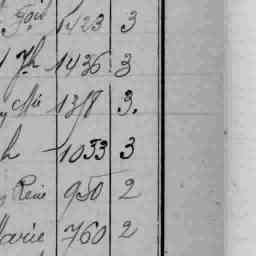 1423 3
Jh 1436 3
Mie 1378 3.
h 1033 3
René 950 2
Marie 760 2